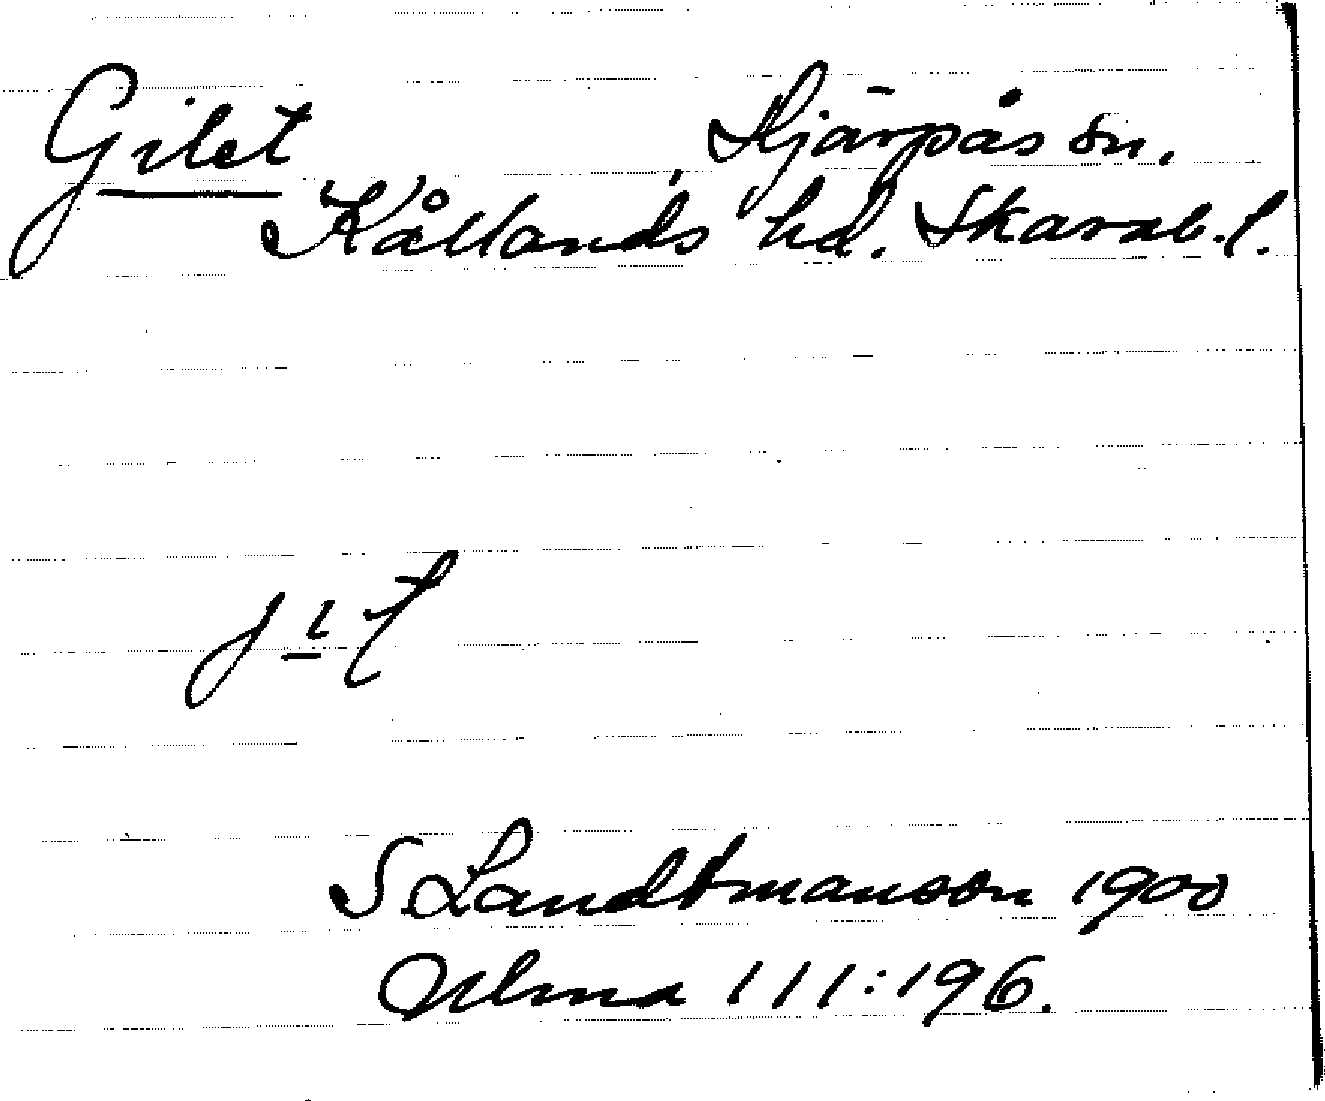 Gilet Härpås sn,
Kållands hd. Skarab.l.
S. Landtmanson 1900
Ulma 111:196.